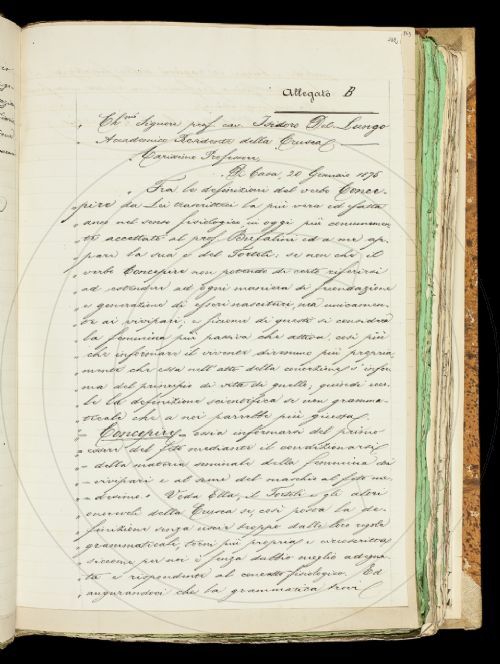 Allegato B
„ Ch.mo Signore prof. cav. Isidoro Del Lungo
„ Accademico Residente della Crusca
„ Carissimo Professore,
„ Di Casa, 20 Gennaio 1875
„ Fra le definizioni del verbo Conce-
„ pire da Lei trascritteci la più vera ed esatta
„ anco nel senso fisiologico, in oggi più comunemen-
„ te accettato al prof. Bufalini ed a me ap-
„ pari la sua e del Tortoli: se non che il
„ verbo Concepire non potendo di certo riferirsi
„ ed estendersi ad ogni maniera di fecondazione
„ e generazione di esseri nascituri, ma unicamen-
„ te ai vivipari, e siccome di questi si considera
„ la femmina più passiva che attiva, così più
„ che informare il vivente diremmo più propria
„ mente che essa nell'atto della concezione s'infor
„ ma del principio di vita di quello; quindi ecco
„ le la definizione scientifica se non gramma-
„ ticale che a noi parrebbe più giusta.
„ Concepire ossia informarsi del primo
„ essere del feto mediante il condizionarsi
„ della materia seminale della femmina dei
„ vivipari e al seme del maschio al feto me-
„ desimo. Veda Ella, il Tortoli e gli altri
„ onorevoli della Crusca se così possa la de-
„ finizione senza uscire troppo dalle loro regole
„ grammaticali, torni più propria e circoscritta
„ siccome per noi è senza dubbio meglio adegua-
„ ta e rispondente al concetto fisiologico. Ed
„ augurandoci che la grammatica trovi